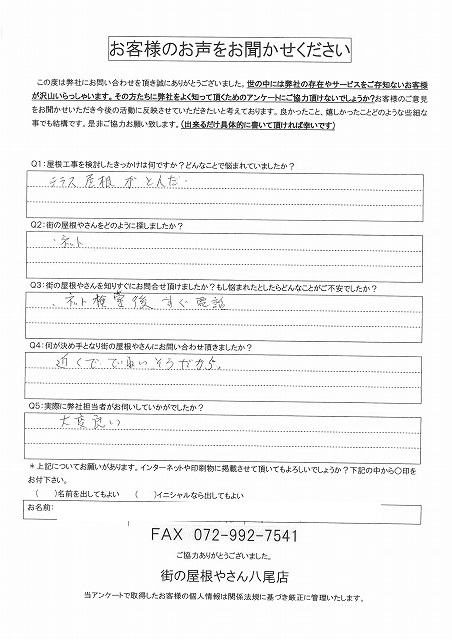 お客様のお声をお聞かせください
この度は弊社にお問い合わせを頂き誠にありがとうございました。世の中には弊社の存在やサービスをご存知ないお客様
が沢山いらっしゃいます。その方たちに弊社をよく知って頂くためのアンケートにご協力頂けないでしょうか？お客様のご意見
をお聞かせいただき今後の活動に反映させていただきたいと考えております。良かったこと、嬉しかったことどのような些細な
事でも結構です。是非ご協力お願い致します。（出来るだけ具体的に書いて頂ければ幸いです）
Q1：屋根工事を検討したきっかけは何ですか？どんなことで悩まれていましたか？
テラス屋根がとんだ.
Q2：街の屋根やさんをどのように探しましたか？
・ネット
Q3：街の屋根やさんを知りすぐにお問合せ頂けましたか？もし悩まれたとしたらどんなことがご不安でしたか？
・ネット検索後すぐ電話
Q4：何が決め手となり街の屋根やさんにお問い合わせ頂きましたか？
近くで
そうだから。
Q5：実際に弊社担当者がお伺いしていかがでしたか？
大変良い
＊上記についてお願いがあります。インターネットや印刷物に掲載させて頂いてもよろしいでしょうか？下記の中から〇印を
お付下さい。
（　）名前を出してもよい　（　）イニシャルなら出してもよい
お名前:
FAX 072-992-7541
ご協力ありがとうございました。
街の屋根やさん八尾店
当アンケートで取得したお客様の個人情報は関係法規に基づき厳正に管理いたします。